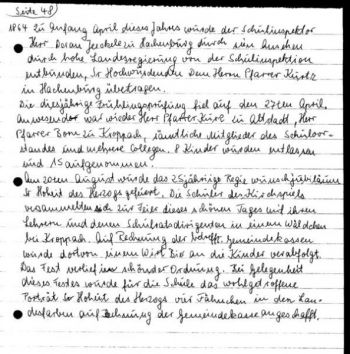 Seite 48)
1864 Zu Anfang April dieses Jahres wurde der Schulinspektor
Herr Dekan Jeckel zu Hachenburg durch sein Ansuchen
durch hohe Landesregierung von der Schulinspektion
entbunden, Sr Hochwürden Dem Herrn Pfarrer Kürtz
in Hachenburg übertragen.
Die diesjährige Frühlingsprüfung fiel auf den 27ten April.
Anwesender war wieder Herr Pfarrer Kürz in Altstadt, Herr
Pfarrer Born zu Kroppach, sämtliche Mitglieder des Schulvor-
standes und mehrere Collegen. 8 Kinder wurden entlassen
und 15 aufgenommen.
Am 20ten August wurde das 25jährige Regierungsjubiläum
Sr Hoheit des Herzogs gefeiert. Die Schüler des Kirchspiels
versammelten sich zur Feier dieses schönen Tages mit ihren
Lehrern und denen Schulratsdirigenten in einem Wäldchen
bei Kroppach. Auf Rechnung der betreff. Gemeindekassen
wurde dort von einem Wirt Bier an die Kinder verabfolgt.
Das Fest verlief in schönster Ordnung. Bei Gelegenheit
dieses Festes wurde für die Schule das wohlgetroffene
Porträt Sr Hoheit des Herzogs vier Fähnchen in den Lan-
desfarben auf Rechnung der Gemeindekasse angeschafft.